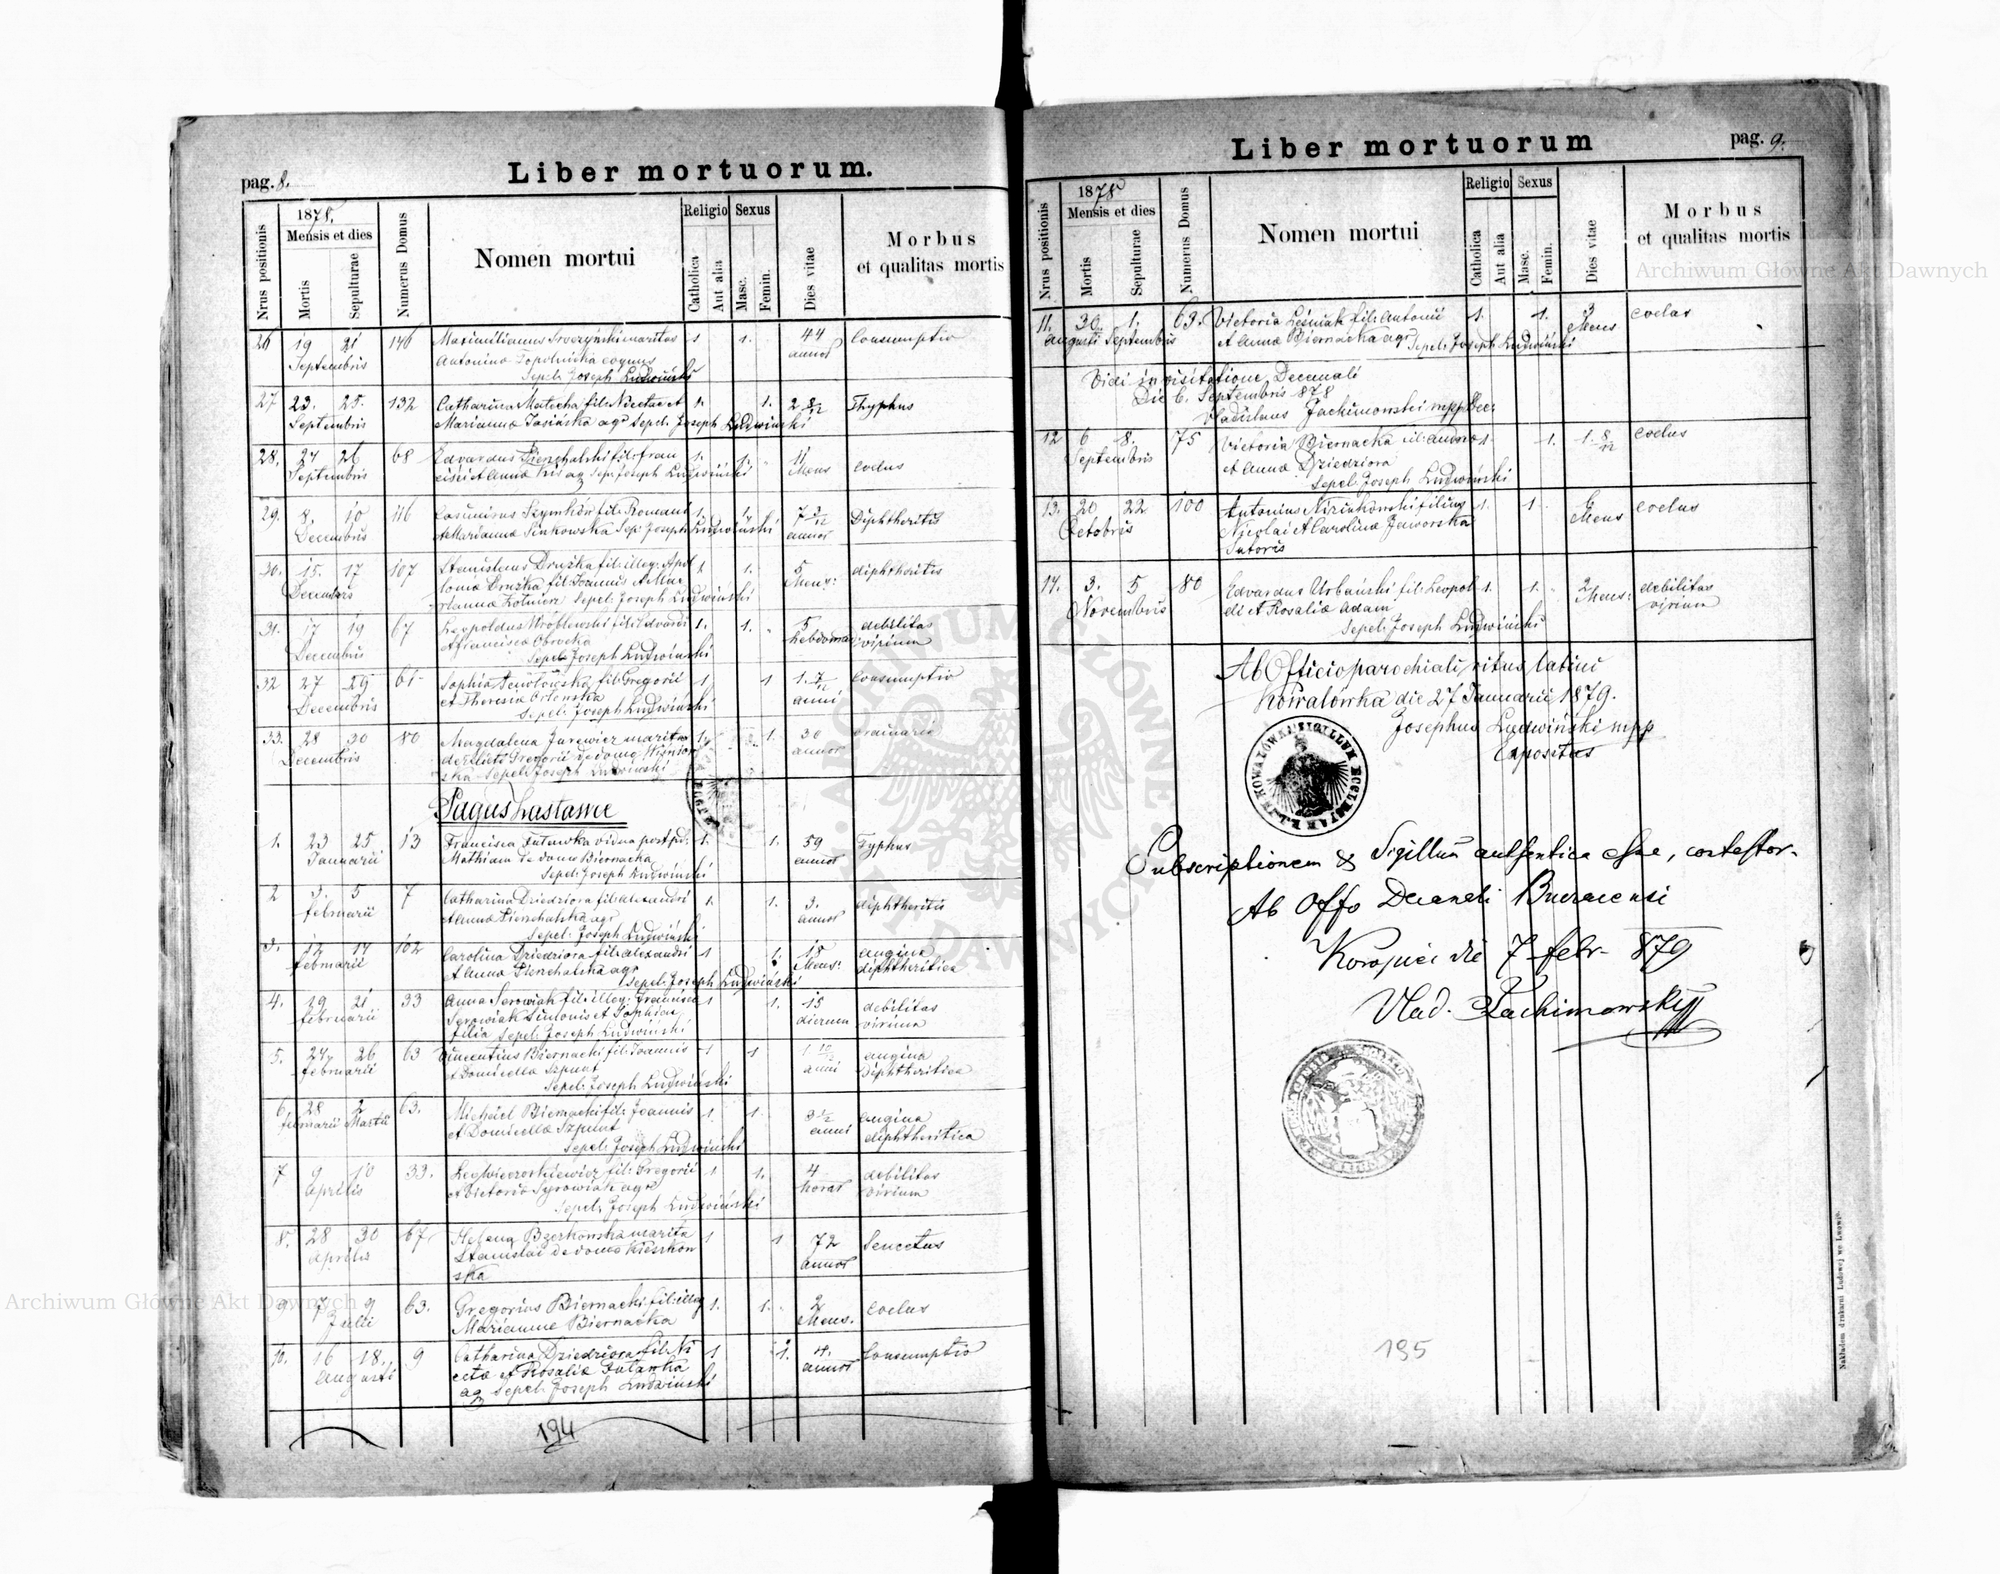 pag. 8.
Liber mortuorum.
Nrus positionis
1878.
Mensis et dies
Mortis
Sepulturae
Numerus Domus
Nomen mortui
Religio
Catholica
Aut alia
Sexus
Masc.
Femin.
Dies vitae
Morbus
et qualitas mortis
26 19 21 146 Maximilianus maritus 1 1. 44 Consumptio
Septembris Antonina annos
Sepel. Joseph Ludwiński
27 23. 25. 132 Catharina Matecha fil: et 1. 1. 2 8/12 Thyphus
Septembris Marianna Jasińska agr Sepel. Joseph Ludwiński
28. 24 26 68 Edvardus Pienchalski fil: Fran 1. 1. 11 coelus
Septembris cisci et Anna ag Sep. Joseph Ludwiński Mens
29. 8. 10 116 Casimirus fil: Romani 1. 1. 7 3/12 Diphtheritis
Decembris et Marianna Sinkowska Sep. Joseph Ludwiński annos
30. 15. 17 107 Stanislaus Druzka fil: illeg. Apol 1 1. 5 diphtheritis
Decembris lonia Druzka fil: Joannis et Ma Mens:
rianna Sepel. Joseph Ludwiński
31. 17 19 67 Leopoldus Wróblewski fil: Edvardi 1. 1. 5 debilitas
Decembris et Francisca virium
Sepel. Joseph Ludwiński
32 27 29 61 Sophia fil: Gregorii 1 1 1. 7/12 Consumptio
Decembris et Theresia anni
Sepel. Joseph Ludwiński
33. 28 30 80 Magdalena Jurewicz marita 1. 1. 30 ordinaria
Decembris Gregorii de domo Wiśniow annos
ska Sepel. Joseph Ludwiński
Pagus
1. 23 25 13 Francisca Futawka vidua post pd: 1. 1. 59 Typhus
Januarii Mathiam de domo Biernacka annos
Sepel. Joseph Ludwiński
2 3. 5 7 Catharina Dziedziora fil: Alexandri 1. 1. 3. diphtheritis
februarii et Anna Pienchalska agr annos
Sepel. Joseph Ludwiński
3. 12 14 102 Carolina Dziedziora fil: Alexandri 1 1. 18 angina
februarii et Anna Pienchalska agr Mens: diphtheritica
Sepel. Joseph Ludwiński
4. 19 21 33 Anna Serowiak fil: illeg. Francisca 1 1. 15 debilitas
februarii Serowiak Simonis et Sophia dierum virium
filia Sepel. Joseph Ludwiński
5. 24 26 63 Vincentius Biernacki fil: Joannis 1 1 1 10/12 angina
februarii et Domicella Szpunt anni diphtheritica
Sepel. Joseph Ludwiński
6. 28 2 63. Michael Biernacki fil: Joannis 1. 1. 3 1/2 angina
februarii Martii et Domicella Szpunt anni diphtheritica
Sepel. Joseph Ludwiński
7 9 10 33. fil: Gregorii 1 1. 4 debilitas
Aprilis et Victoria Syrowiak agr horas virium
Sepel. Joseph Ludwiński
8. 28 30 67. Helena marita 1 1 72 Senectus
Aprilis Stanislai de domo annos
ska
9. 7 9 63. Gregorius Biernacki fil: illeg 1. 1. 2 coelus
Julii Marianna Biernacka Mens.
10. 16 18. 9 Catharina Dziedziora fil: Ni 1 1. 4. Consumptio
Augusti ceta et Rosalia Futawka annos
ag Sepel. Joseph Ludwiński
194
Liber mortuorum
pag. 9.
Nrus positionis
1878
Mensis et dies
Mortis
Sepulturae
Numerus Domus
Nomen mortui
Religio
Catholica
Aut alia
Sexus
Masc.
Femin.
Dies vitae
Morbus
et qualitas mortis
11. 30. 1. 63. Victoria Leśniak fil: Antonii 1. 1. 3 coelus
Augusti Septembris et Anna Biernacka agr Sepel. Joseph Ludwiński Mens
Vidi in visitatione Decanali
Die 6. Septembris 1878
Vladislaus Jachimowski mpp Dec:
12 6 8. 75 Victoria Biernacka fil: Andrea 1. 1. 1. 8/12 coelus
Septembris et Anna Dziedziora
Sepel. Joseph Ludwiński
13. 20 22 100 Antonius filius 1. 1 6 coelus
Octobris Nicolai et Carolina Jaworska Mens
Sutoris
14. 3. 5 80 Edvardus Urbański fil: Leopol 1. 1. 2 debilitas
Novembris di et Rosalia Adam Mens: virium
Sepel. Joseph Ludwiński
Ab Officio parochiali ritus latini
Kowalówka die 27 Januarii 1879.
Josephus Ludwiński mpp
Expositus
Subscriptionem & Sigillum authentica esse, contestor.
Ab Offo Decanali Buczacensi
Koropiec die 7 febr. 879
Vlad. Jachimowski
195
Nakładem drukarni Ludowej we Lwowie.
Archiwum Główne Akt Dawnych
Archiwum Główne Akt Dawnych
ARCHIWUM GŁÓWNE AKT DAWNYCH